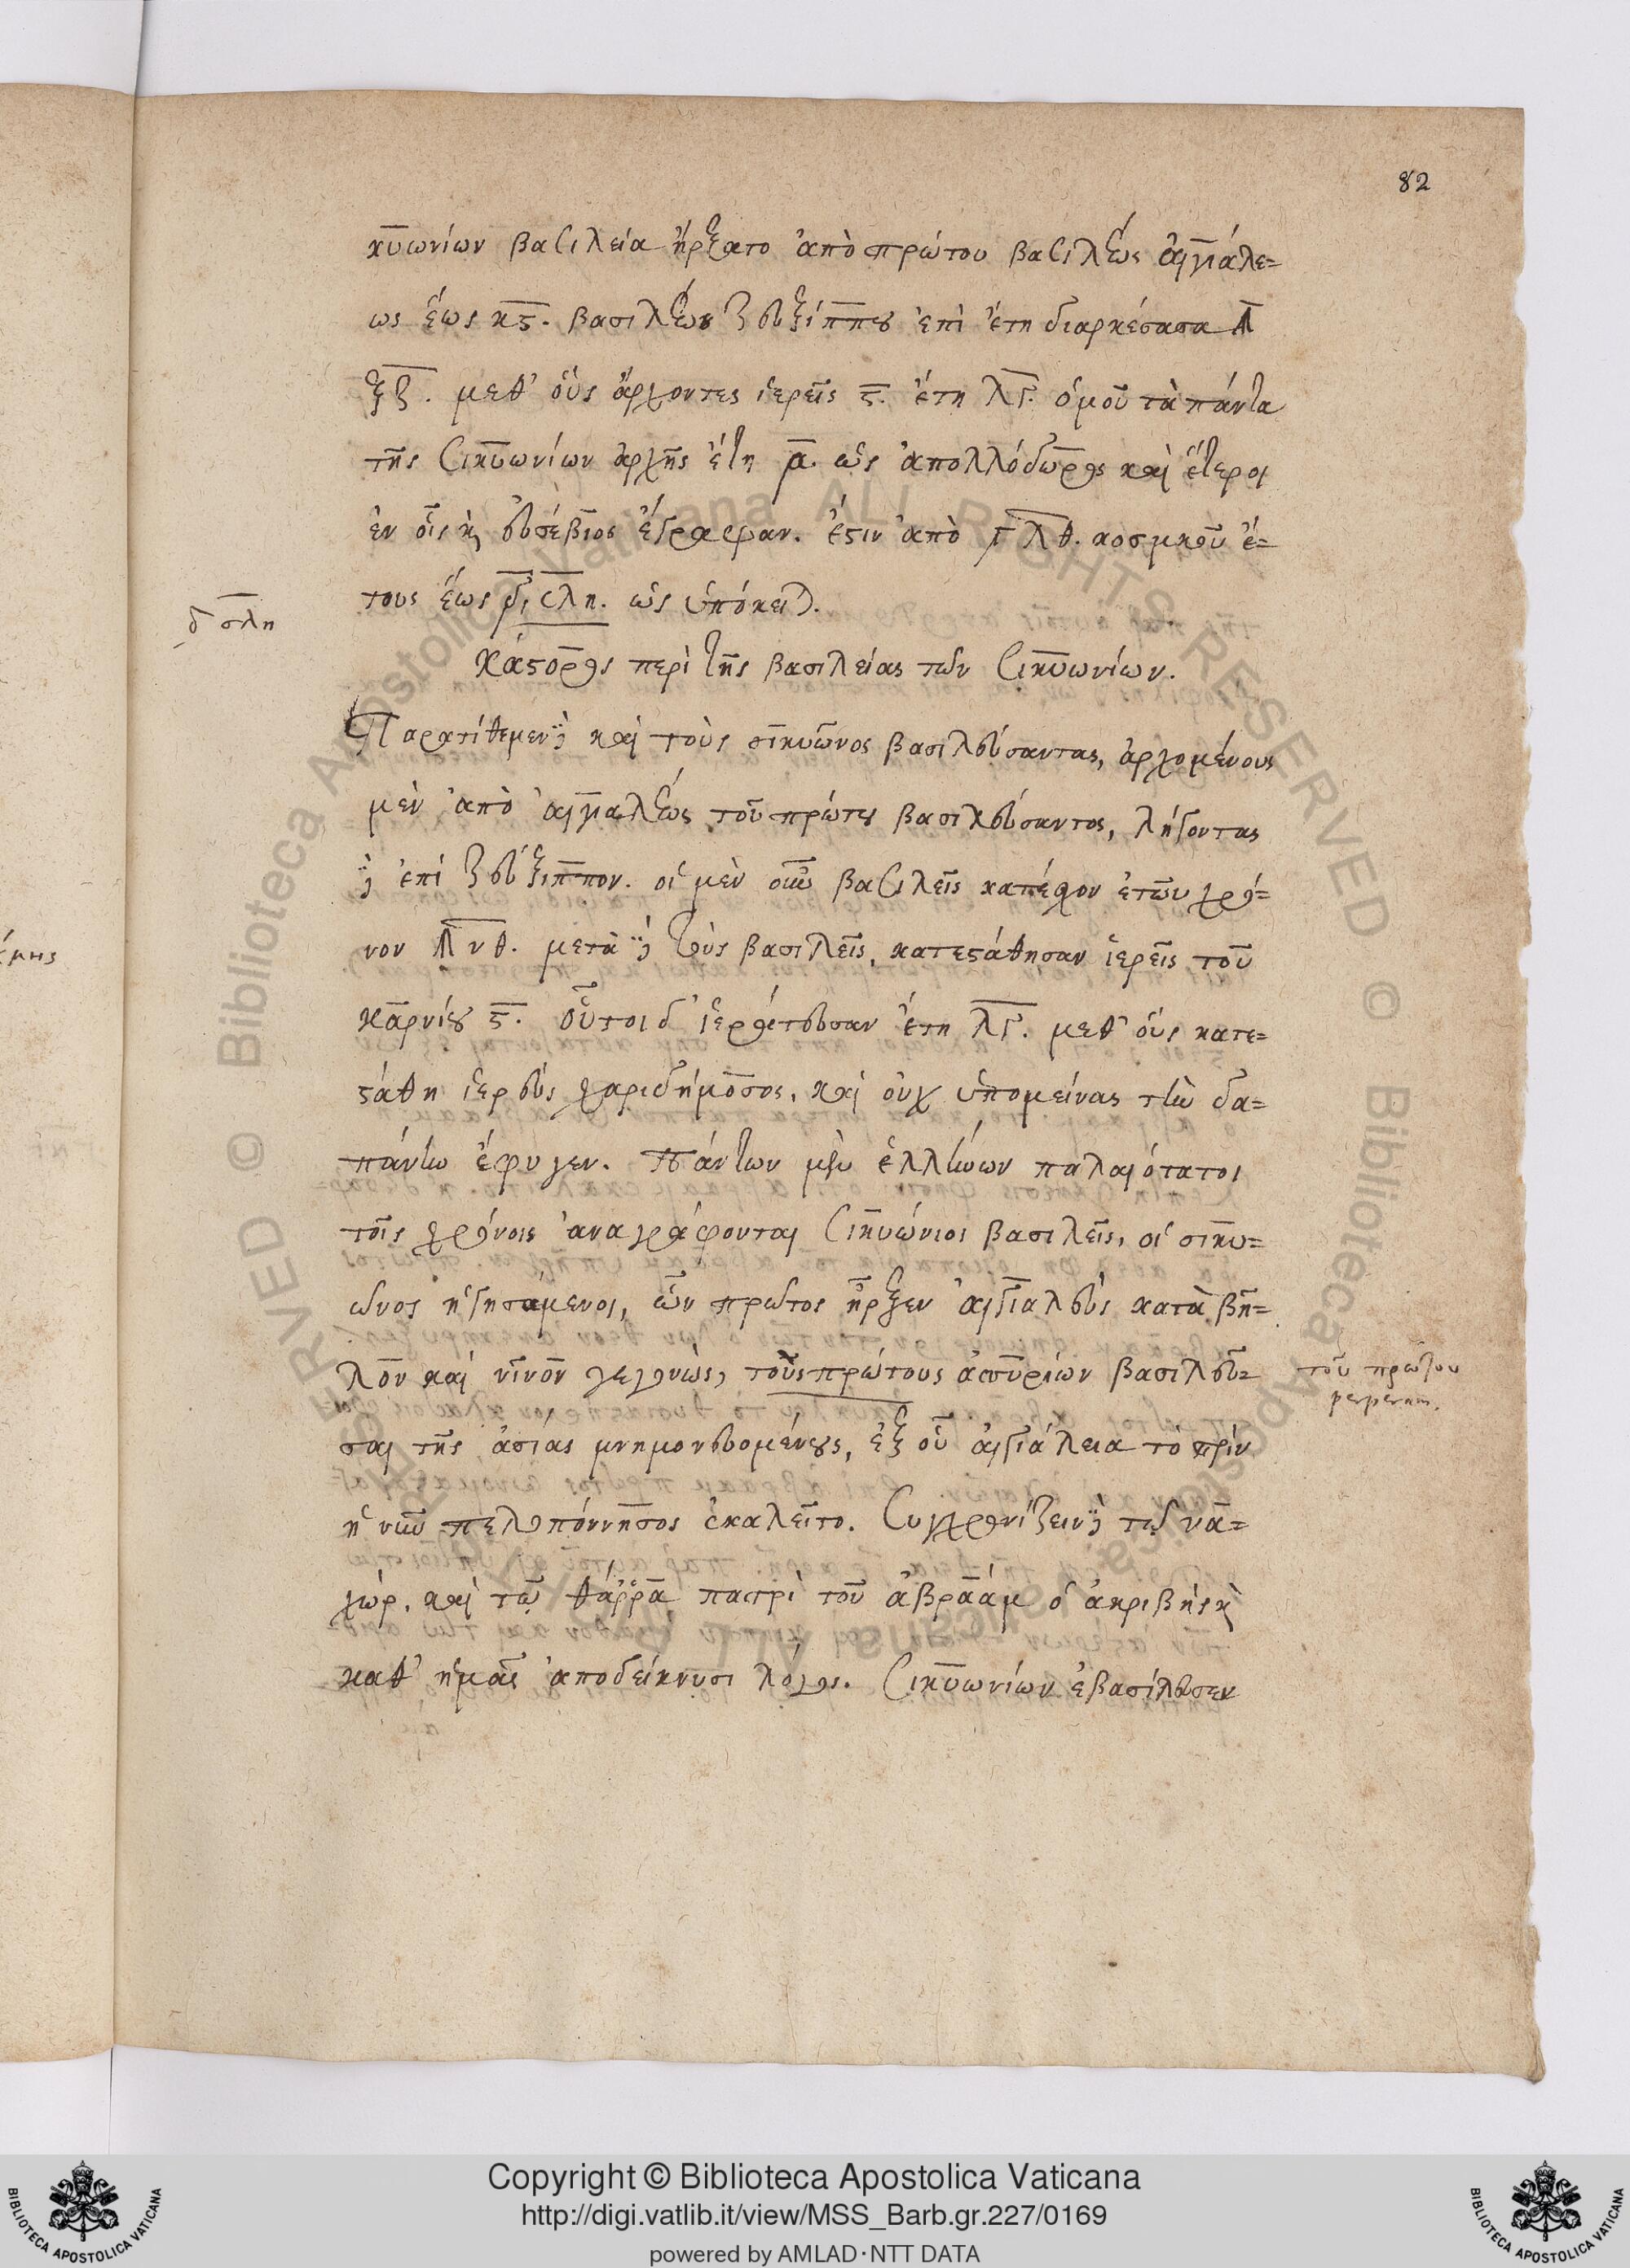 82
κυωνίων βασιλεία ἤρξατο ἀπὸ πρώτου βασιλέως αἰγιάλε=
ως ἕως κϛ. βασιλέως ζευξίππου ἐπὶ ἔτη διαρκέσασα ϡ
ξζ. μεθ' οὓς ἄρχοντες ἱερεῖς ϛ. ἔτη λγ. ὁμοῦ τὰ πάντα
τῆς Σικυωνίων ἀρχῆς ἔτη ͵α. ὡς ἀπολλόδωρος καὶ ἕτεροι
ἐν οἷς κ, εὐσέβιος ἔγραψαν. ἔστιν ἀπὸ ͵γλθ. κοσμικοῦ ἔ=
τους ἕως ͵δ, σλη. ὡς ὑπόκειται.
͵δ σλη
Κάστορος περὶ τῆς βασιλείας τῶν Σικυωνίων.
Παρατίθεμεν δὲ καὶ τοὺς σικυῶνος βασιλεύσαντας, ἀρχομένους
μὲν ἀπὸ αἰγιαλέως τοῦ πρώτου βασιλεύσαντος, λήγοντας
δὲ ἐπὶ ζεύξιππον. οἱ μὲν οὖν βασιλεῖς κατέσχον ἐτῶν χρό=
νον ϡνθ. μετὰ δὲ τοὺς βασιλεῖς, κατεστάθησαν ἱερεῖς τοῦ
καρνίου ϛ. οὗτοι δ' ἱεράτευσαν ἔτη λγ. μεθ' οὓς κατε=
στάθη ἱερεὺς χαριδήμοσος, καὶ οὐχ ὑπομείνας τὴν δα=
πάνην ἔφυγεν. Πάντων μὲν ἑλλήνων παλαιότατοι
τοῖς χρόνοις ἀναγράφονται Σικυώνιοι βασιλεῖς, οἱ σικυ=
ῶνος ἡγησάμενοι, ὧν πρῶτος ἦρξεν αἰγιαλεὺς κατὰ βῆ=
λον καὶ νίνον γεγονὼς, τοὺς πρώτους ἀσσυρίων βασιλεῦ=
τοῦ πρώτου
perperam.
σαι τῆς ἀσίας μνημονευομένους, ἐξ οὗ αἰγιάλεια τὸ πρὶν
ἡ νῦν πελοπόννησος ἐκαλεῖτο. Συγχρονίζειν δὲ τῷ να=
χώρ, καὶ τῷ θάρρα πατρὶ τοῦ ἀβραάμ ὁ ἀκριβὴς κ
καθ' ἡμᾶς ἀποδείκνυσι λόγος. Σικυωνίων ἐβασίλευσεν
Copyright © Biblioteca Apostolica Vaticana
http://digi.vatlib.it/view/MSS_Barb.gr.227/0169
powered by AMLAD·NTT DATA
BIBLIOTECA APOSTOLICA VATICANA
BIBLIOTECA APOSTOLICA VATICANA